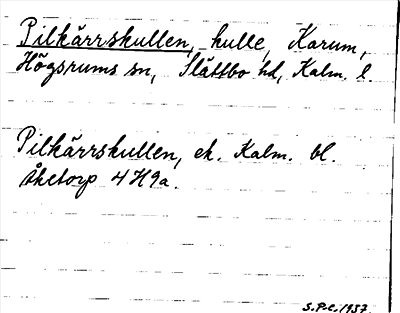 Pilkärrskullen, kulle, Karum,
Högsrums sn, Slättbo hd, Kalm. l.
Pilkärrskullen, ek. Kalm. bl.
Åketorp 4H9a.
S.P.C. 1937.